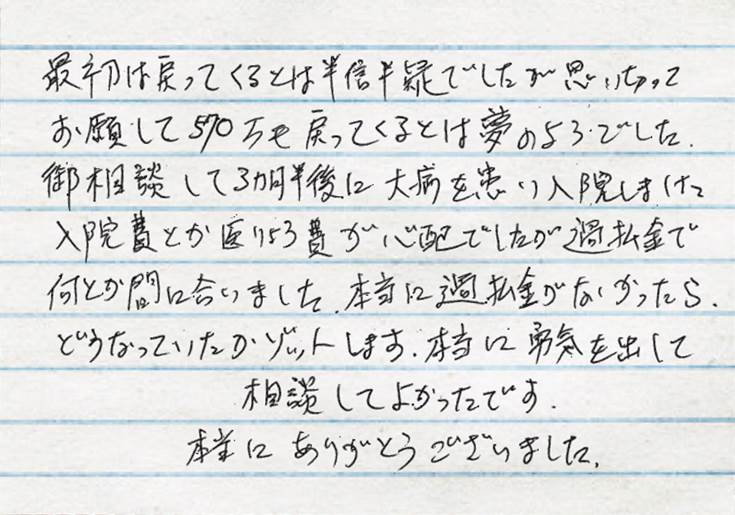 最初は戻ってくるとは半信半疑でしたが思い切って
お願して570万も戻ってくるとは夢のようでした.
御相談して3カ月半後に大病を患い入院しました
入院費とか医りょう費が心配でしたが過払金で
何とか間に合いました.本当に過払金がなかったら.
どうなっていたかゾットします.本当に勇気を出して
相談してよかったです.
本当にありがとうございました.